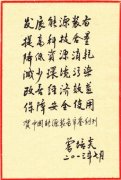 发展能源装备
提高科技含量
降低资源消耗
减少环境污染
改善经济效益
保障安全使用
贺中国能源装备 创刊
曾培炎
二〇〇三年七月